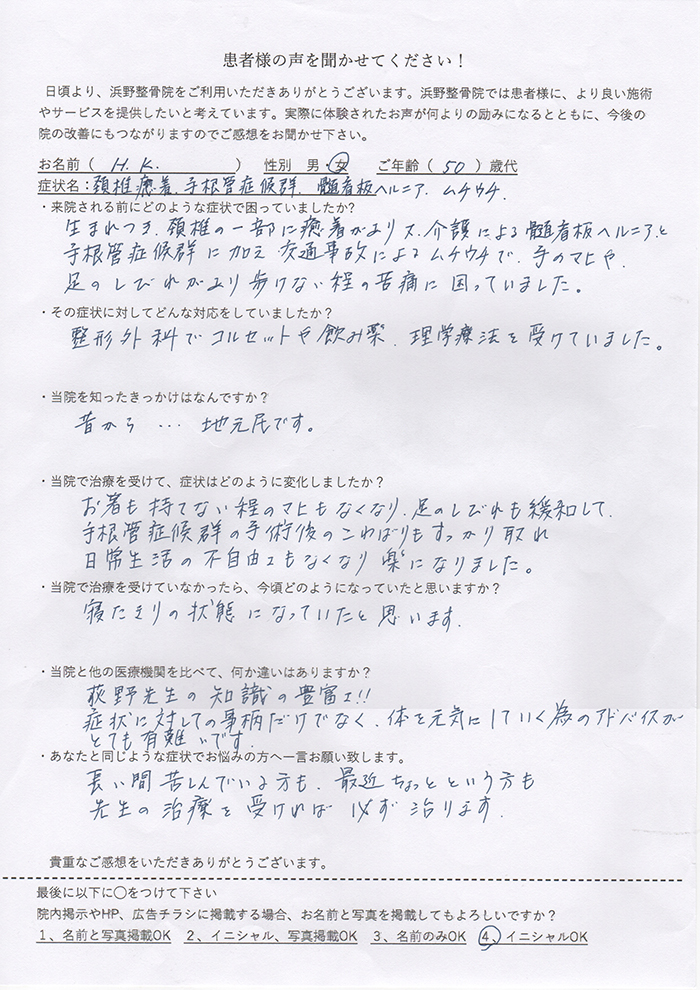 患者様の声を聞かせてください！
日頃より、浜野整骨院をご利用いただきありがとうございます。浜野整骨院では患者様に、より良い施術
やサービスを提供したいと考えています。実際に体験されたお声が何よりの励みになるとともに、今後の
院の改善にもつながりますのでご感想をお聞かせ下さい。
お名前（ H.K. ） 性別 男・女 ご年齢（ 50 ）歳代
症状名：頚椎癒着、手根管症候群、髄看板ヘルニア、ムチウチ
・来院される前にどのような症状で困っていましたか？
生まれつき、頚椎の一部に癒着があり又、介護による髄看板ヘルニアと
手根管症候群に加え交通事故によるムチウチで、手のマヒや、
足のしびれがあり歩けない程の苦痛に困っていました。
・その症状に対してどんな対応をしていましたか？
整形外科でコルセットや飲み薬、理学療法を受けていました。
・当院を知ったきっかけはなんですか？
昔から … 地元民です。
・当院で治療を受けて、症状はどのように変化しましたか？
お箸も持てない程のマヒもなくなり、足のしびれも緩和して、
手根管症候群の手術後のこわばりもすっかり取れ
日常生活の不自由さもなくなり楽になりました。
・当院で治療を受けていなかったら、今頃どのようになっていたと思いますか？
寝たきりの状態になっていたと思います。
・当院と他の医療機関を比べて、何か違いはありますか？
荻野先生の知識の豊富さ!!
症状に対しての事柄だけでなく、体を元気にしていく為のアドバイスが
とても有難いです。
・あなたと同じような症状でお悩みの方へ一言お願い致します。
長い間苦しんでいる方も、最近ちょっとという方も
先生の治療を受ければ必ず治ります。
貴重なご感想をいただきありがとうございます。
最後に以下に○をつけて下さい
院内掲示やHP、広告チラシに掲載する場合、お名前と写真を掲載してもよろしいですか？
1、名前と写真掲載OK 2、イニシャル、写真掲載OK 3、名前のみOK 4、イニシャルOK